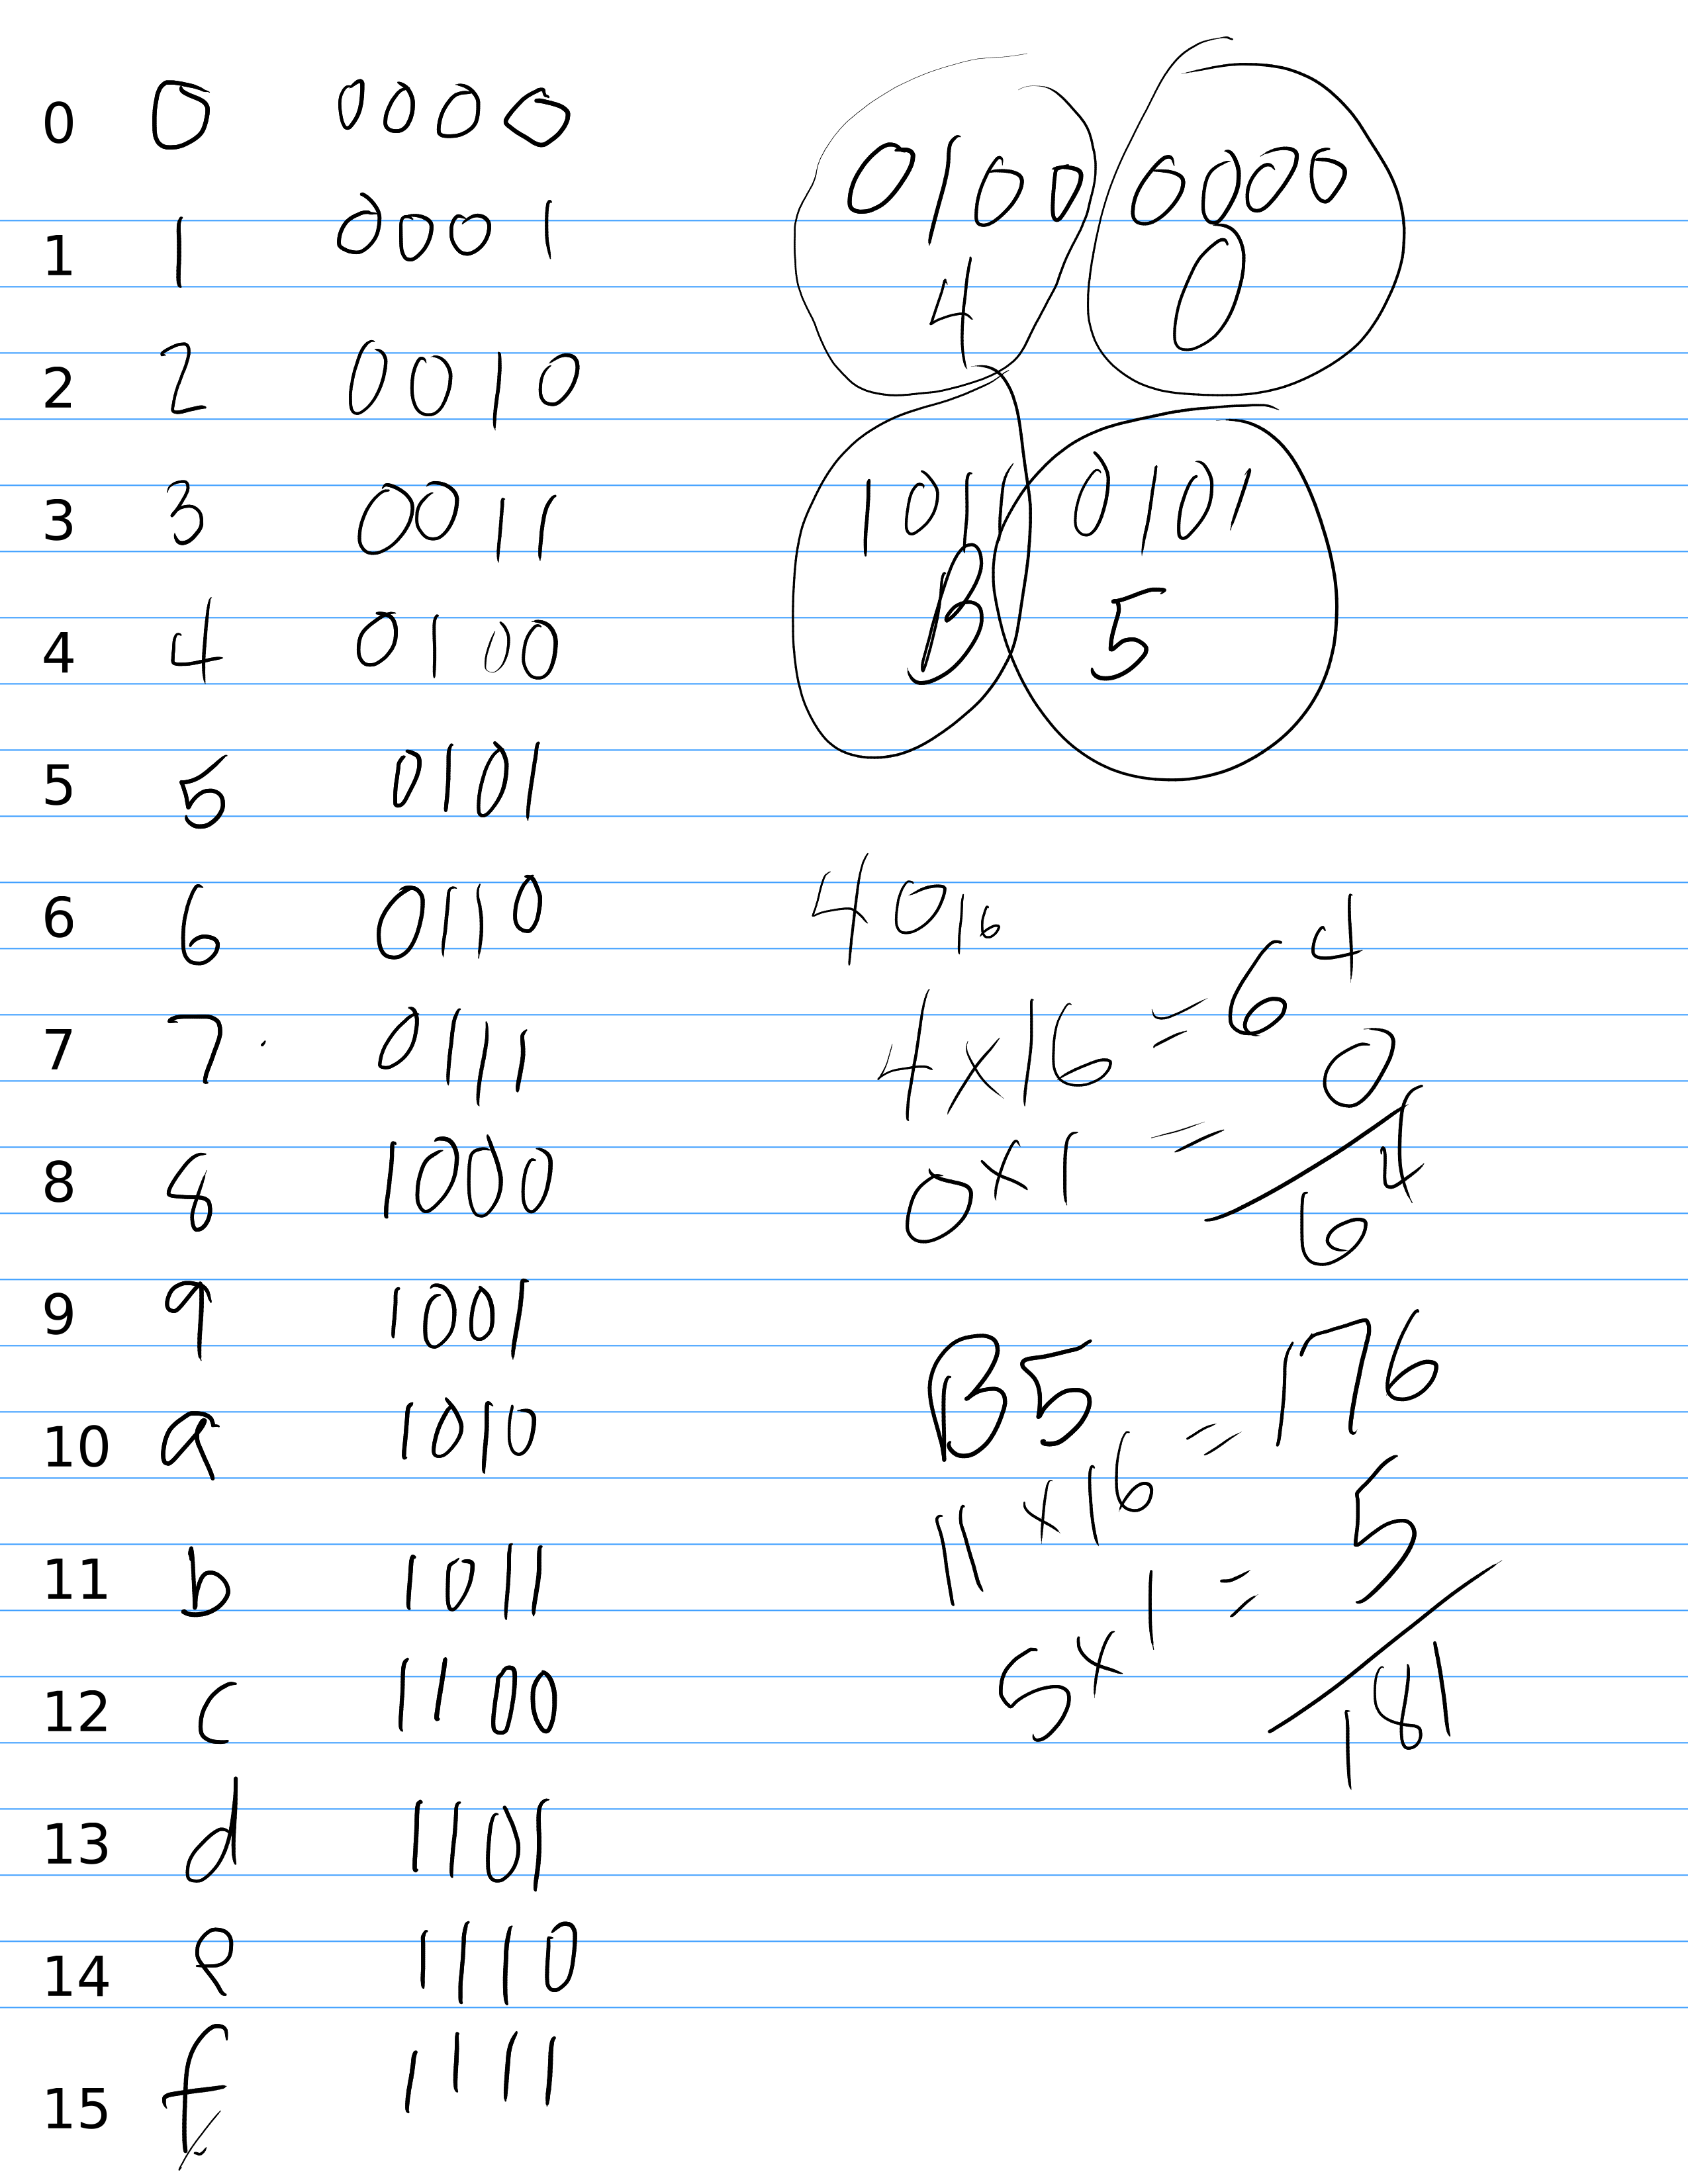 0 0 0000
1 1 0001
2 2 0010
3 3 0011
4 4 0100
5 5 0101
6 6 0110
7 7 0111
8 8 1000
9 9 1001
10 a 1010
11 b 1011
12 c 1100
13 d 1101
14 e 1110
15 f 1111
0100 0000
4 0
1011 0101
B 5
40₁₆
4x16 = 64
0x1 = 0
64
B5
11x16 = 176
5x1 = 5
181